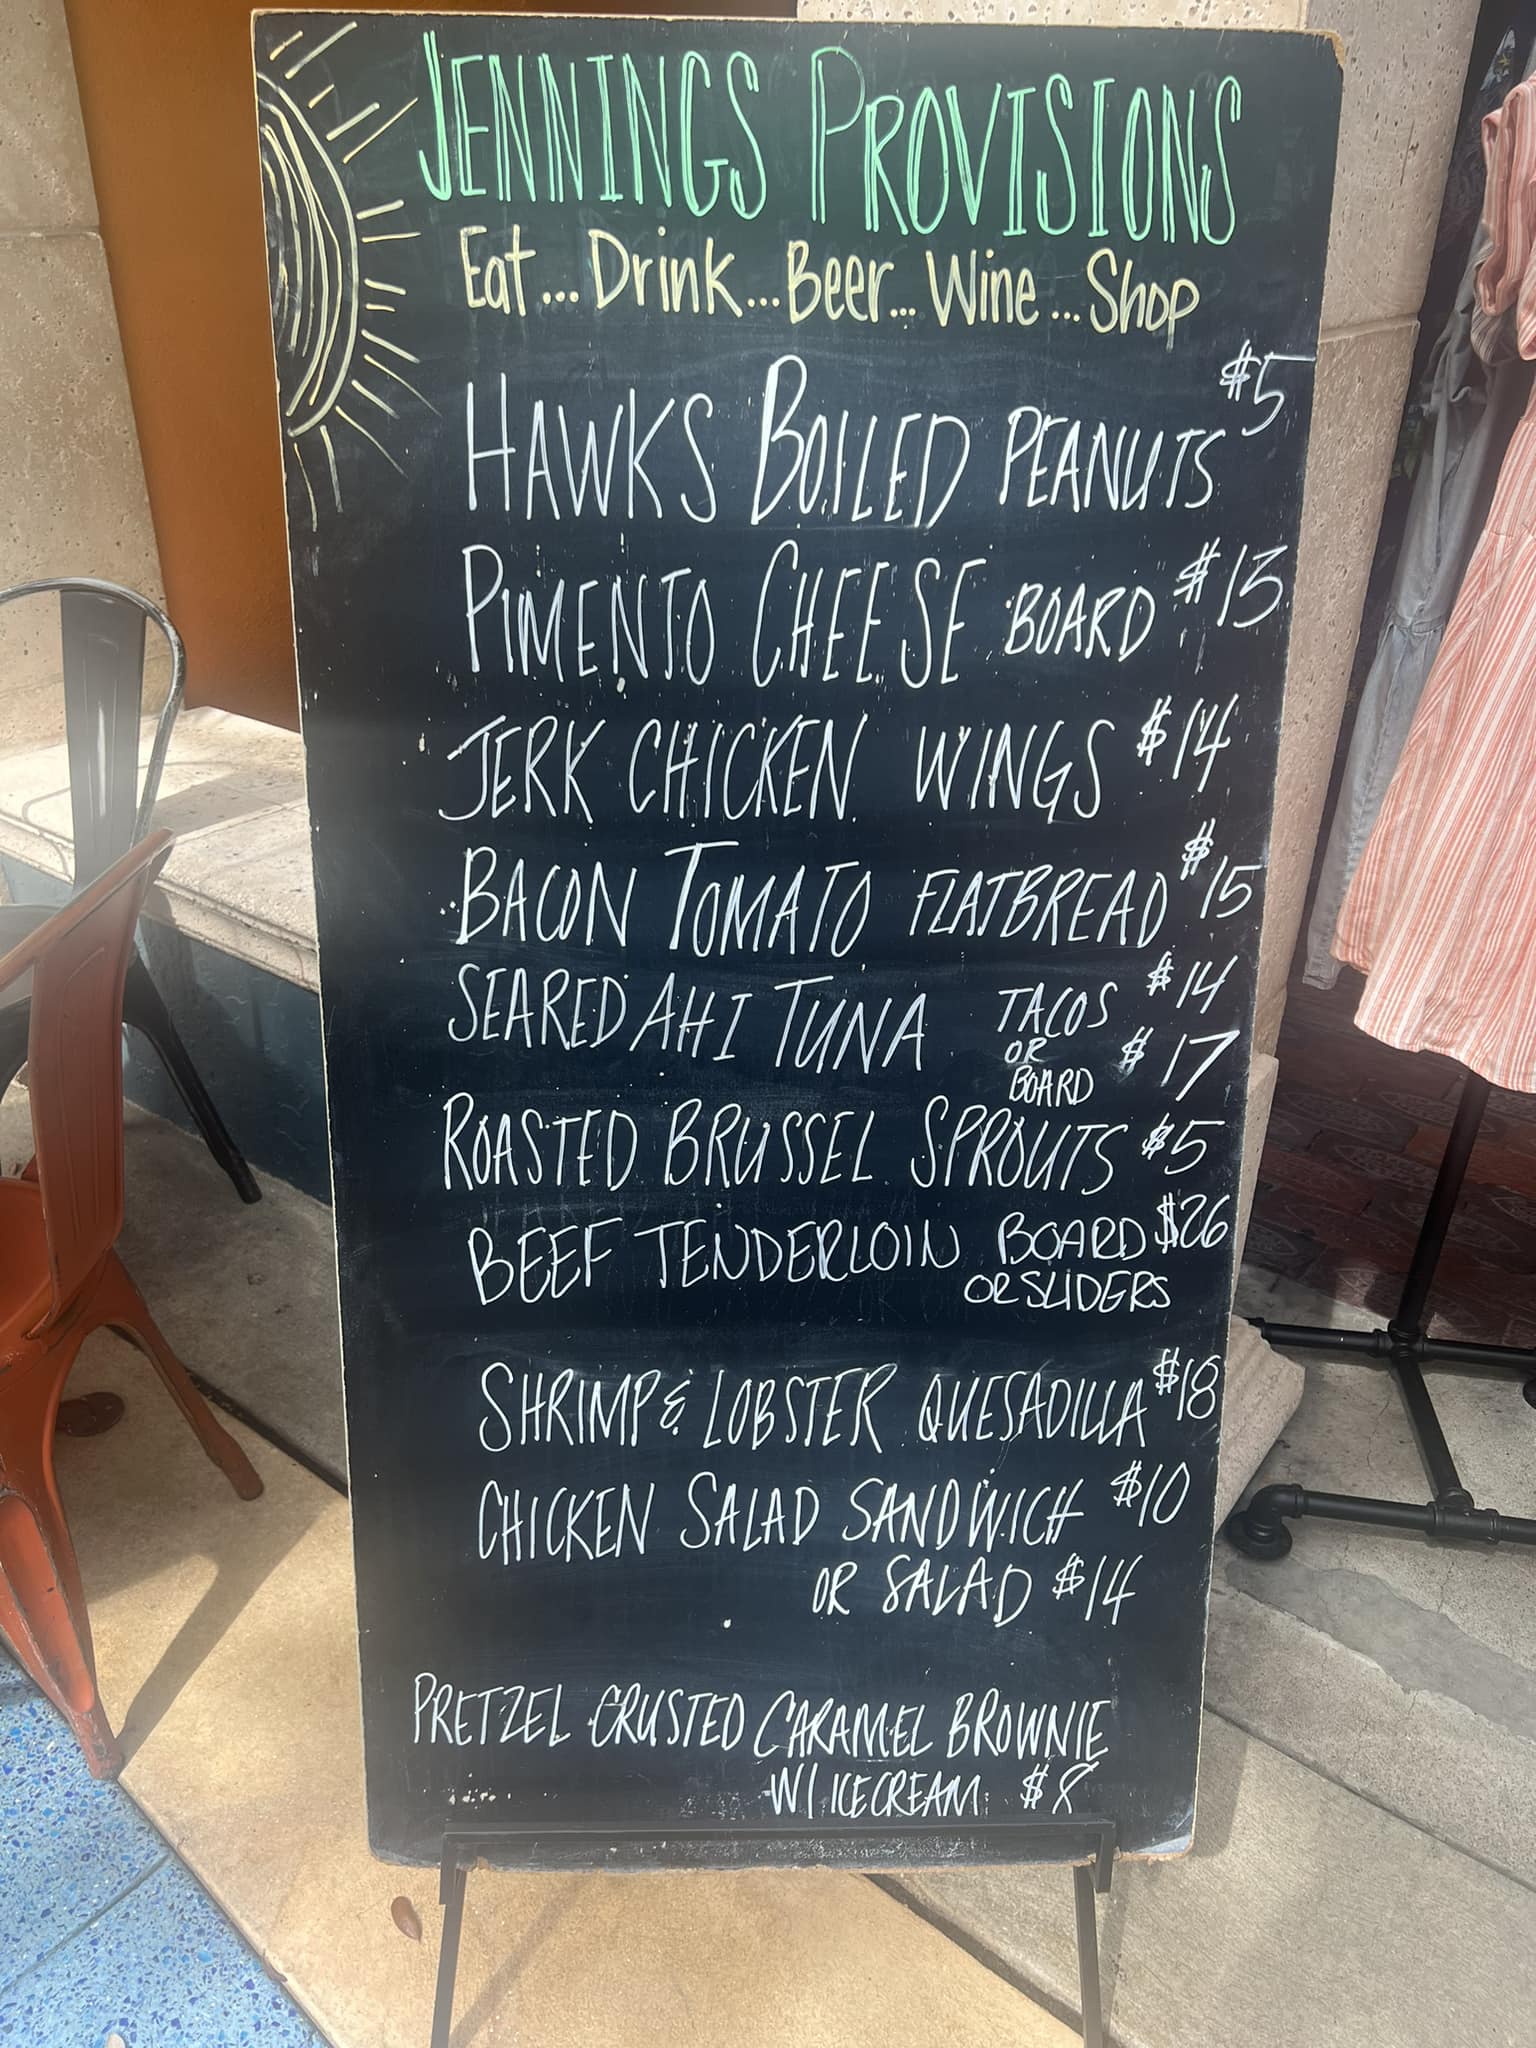 JENNINGS PROVISIONS
Eat... Drink... Beer... Wine... Shop
HAWKS BOILED PEANUTS $5
PIMENTO CHEESE BOARD $13
JERK CHICKEN WINGS $14
BACON TOMATO FLATBREAD $15
SEARED AHI TUNA TACOS $14
OR
BOARD $17
ROASTED BRUSSEL SPROUTS $5
BEEF TENDERLOIN BOARD $26
OR SLIDERS
SHRIMP & LOBSTER QUESADILLA $18
CHICKEN SALAD SANDWICH $10
OR SALAD $14
PRETZEL CRUSTED CARAMEL BROWNIE
W/ ICECREAM $8